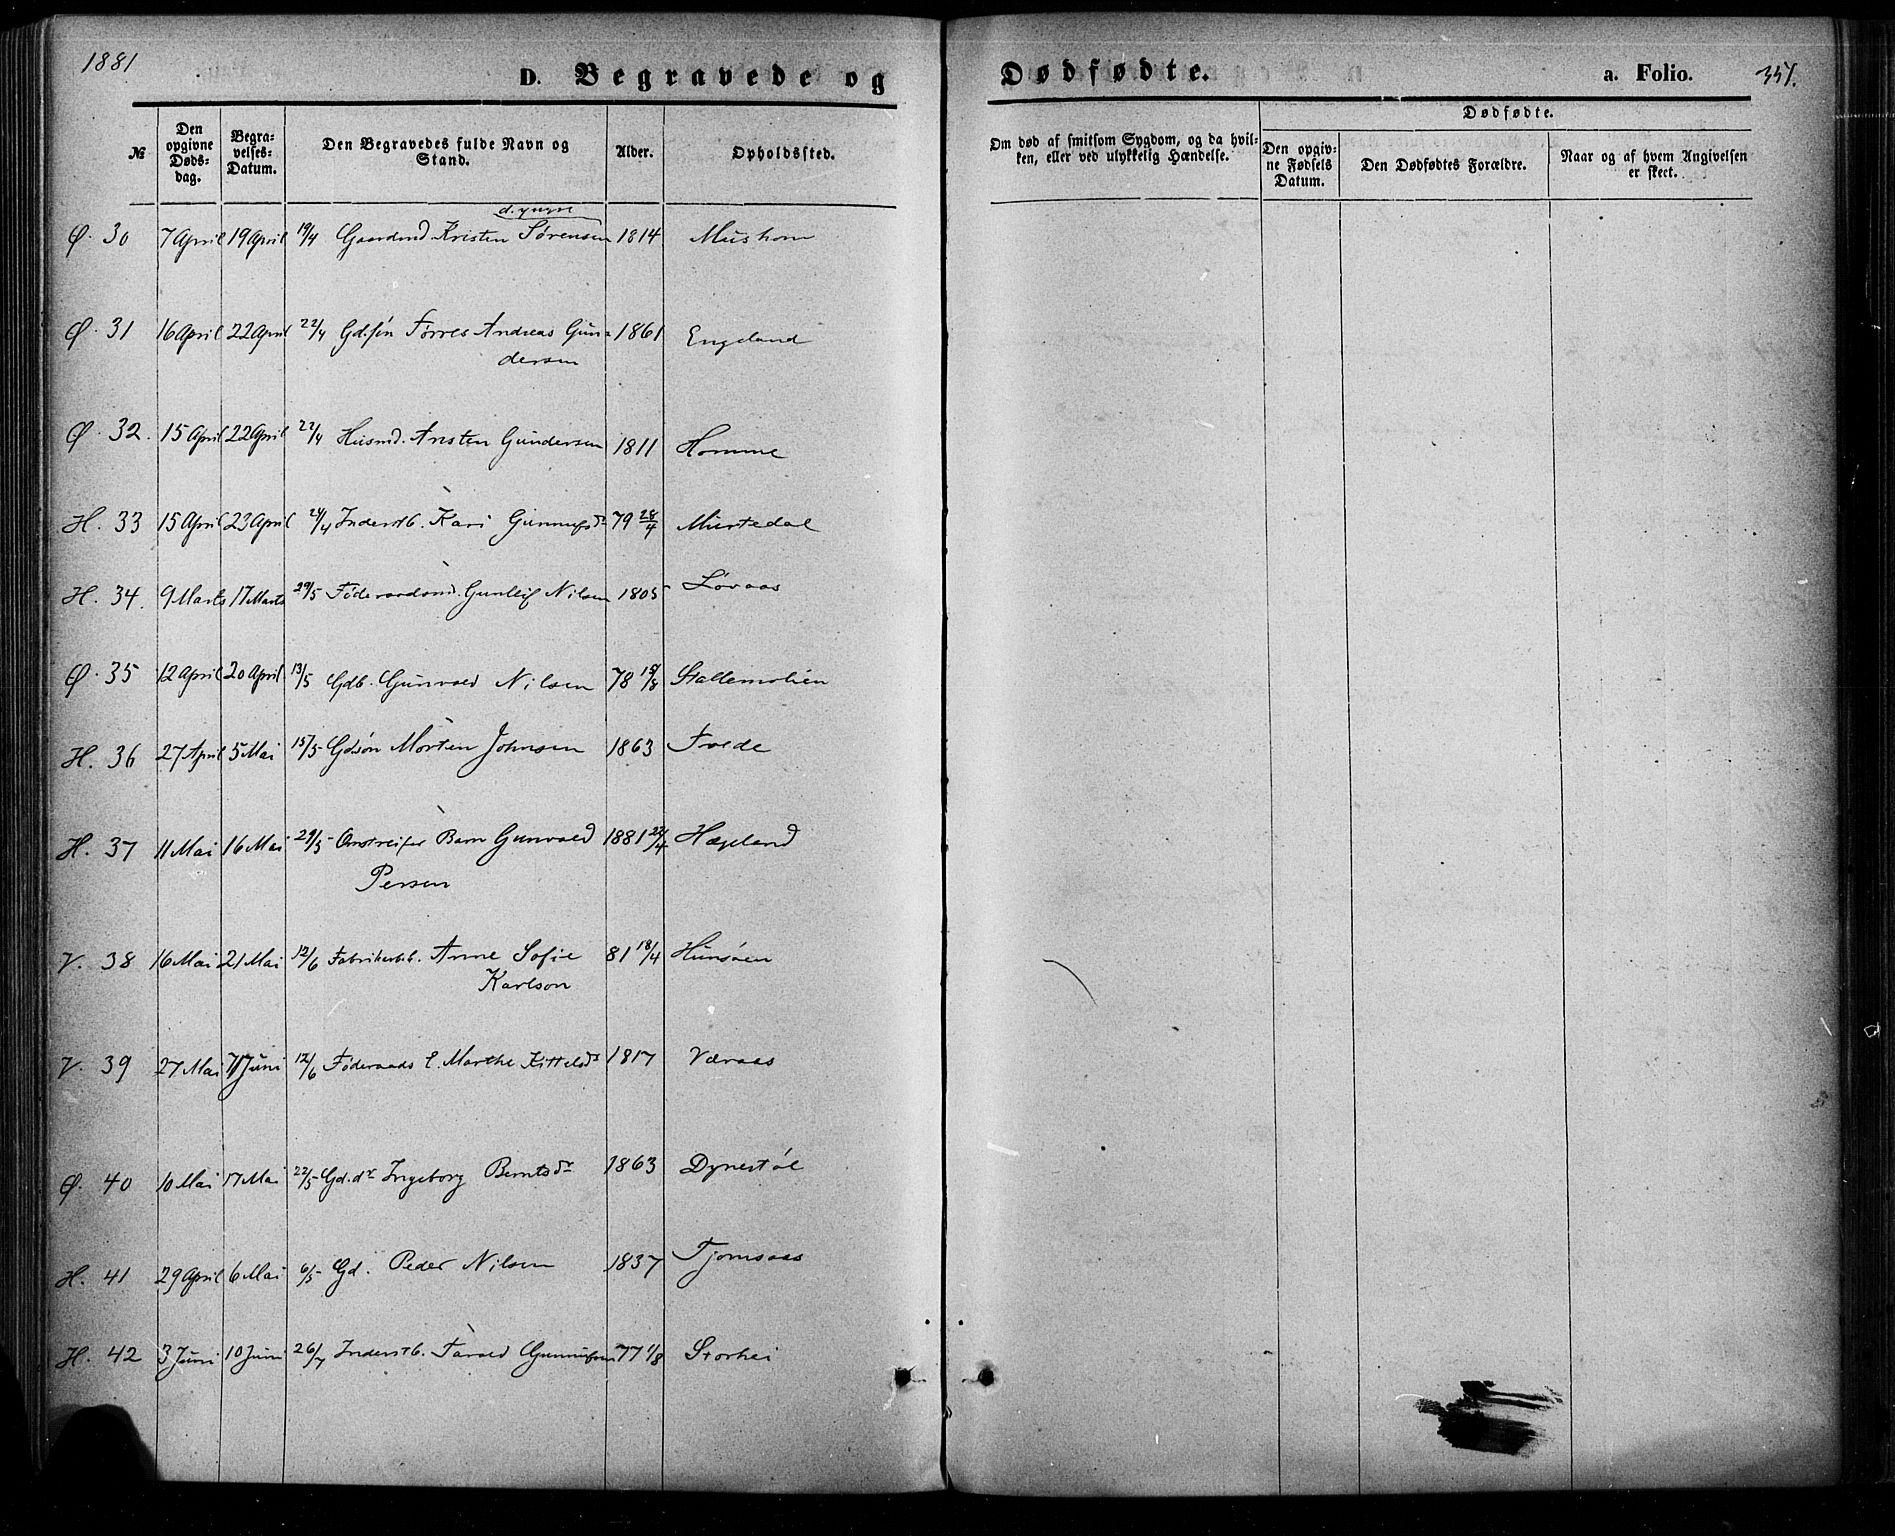 1881
D. Begravede og Dødfødte.
a. Folio. 351.
№
Den opgivne Døds-dag.
Begra-velses-Datum.
Den Begravedes fulde Navn og Stand.
Alder.
Opholdssted.
Om død af smitsom Sygdom, og da hvil-
ken, eller ved ulykkelig Hændelse.
Dødfødte.
Den opgiv-
ne Fødsels
Datum.
Den Dødfødtes Forældre.
Naar og af hvem Angivelsen
er skeet.
d. yngre
Ø. 30 7 April 19 April 19/4 Gaardmd Kristen Sørensen 1814
Ø. 31 16 April 22 April 22/4 Gd.søn Tørres Andreas Gun- 1861 Engeland
dersen
Ø. 32. 15 April 22 April 22/4 Husmd. Ansten Gundersen 1811 Homme
H. 33 15 April 23 April 24/4 Inderstb. Kari 79 28/4
H. 34. 9 Marts 17 Marts 29/5 Føderaadsmd. Gunleif Nilsen 1805 Løvaas
Ø. 35 12 April 20 April 13/5 Gdb. Gunvald Nilsen 78 Stallemolien
H. 36 27 April 5 Mai 15/5 Gdsøn Morten Johnsen 1863 Tvede
H. 37 11 Mai 16 Mai 29/5 Barn Gunvald 1881 22/4 Hægeland
Persen
V. 38 16 Mai 21 Mai 12/6 Anne Sofie 81 18/4 Hunsøen
Karlson
V. 39 27 Mai 7 Juni 12/6 Føderaads E. Marthe Kittelsdr 1817 Væraas
Ø. 40 10 Mai 17 Mai 22/5 Gd.dr Ingeborg Berntsdr 1863 Dynestøl
H. 41 29 April 6 Mai 6/5 Gd. Peder Nilsen 1837 Tjomsaas
H. 42 3 Juni 10 Juni 26/7 Inderstb. Tarald 77 1/8 Storhei